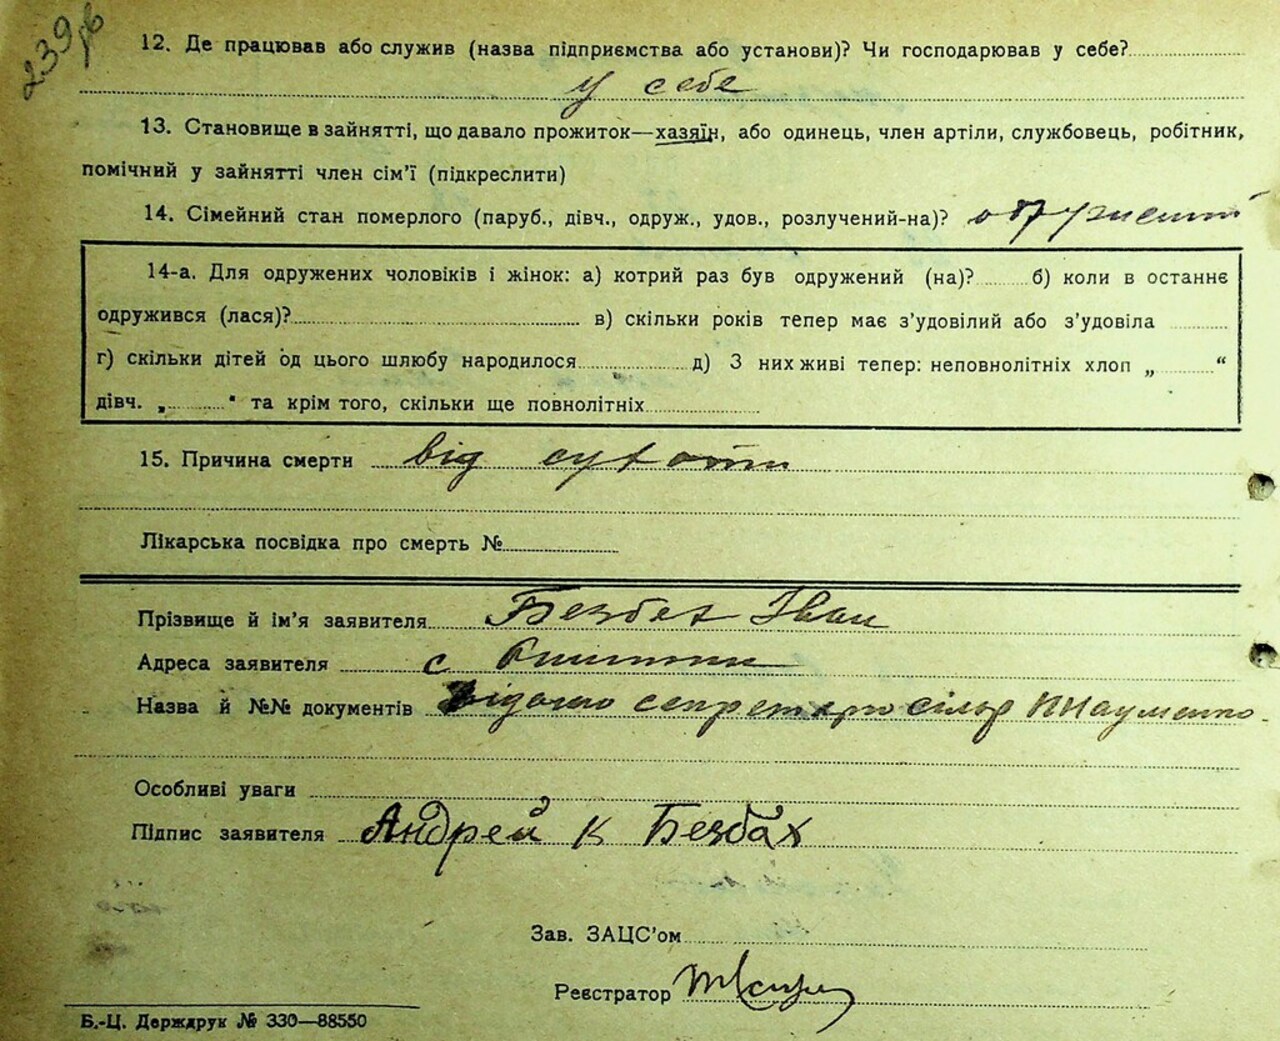 239 зв
12. Де працював або служив (назва підприємства або установи)? Чи господарював у себе?
у себе
13. Становище в зайнятті, що давало прожиток—хазяїн, або одинець, член артіли, службовець, робітник,
помічний у зайнятті член сім'ї (підкреслити)
14. Сімейний стан померлого (паруб., дівч., одруж., удов., розлучений-на)?
14-а. Для одружених чоловіків і жінок: а) котрий раз був одружений (на)? б) коли в останнє
одружився (лася)? в) скільки років тепер має з'удовілий або з'удовіла
г) скільки дітей од цього шлюбу народилося д) З них живі тепер: неповнолітніх хлоп „ “
дівч. „ “ та крім того, скільки ще повнолітніх
15. Причина смерти від
Лікарська посвідка про смерть №
Прізвище й ім'я заявителя Безбах Іван
Адреса заявителя с
Назва й №№ документів Відомо секретарю сільр Науменко
Особливі уваги
Підпис заявителя Андрей К Безбах
Зав. ЗАЦС'ом
Реєстратор
Б.-Ц. Держдрук № 330—88550